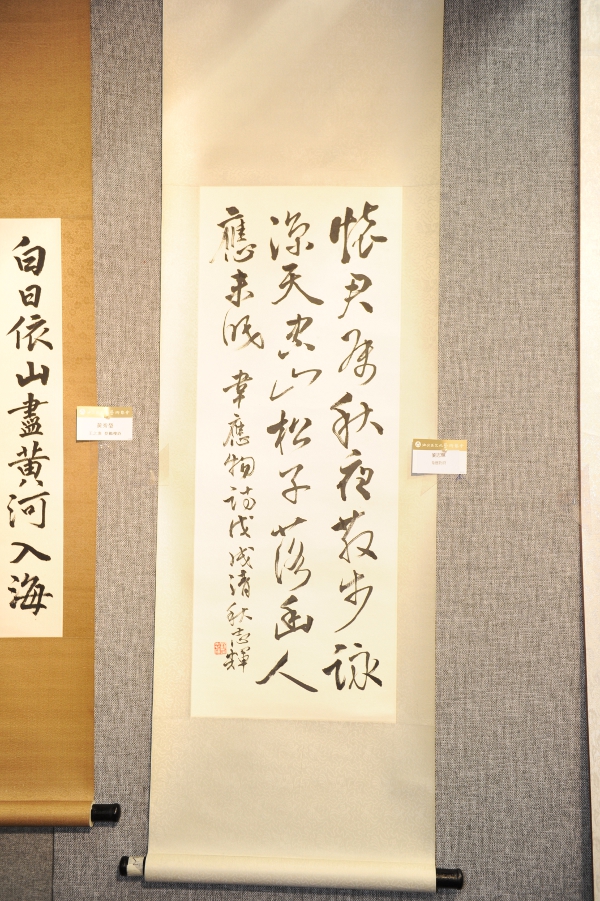 懷君屬秋夜散步詠
涼天空山松子落幽人
應未眠 韋應物詩戊戌清秋志輝
白日依山盡黃河入海